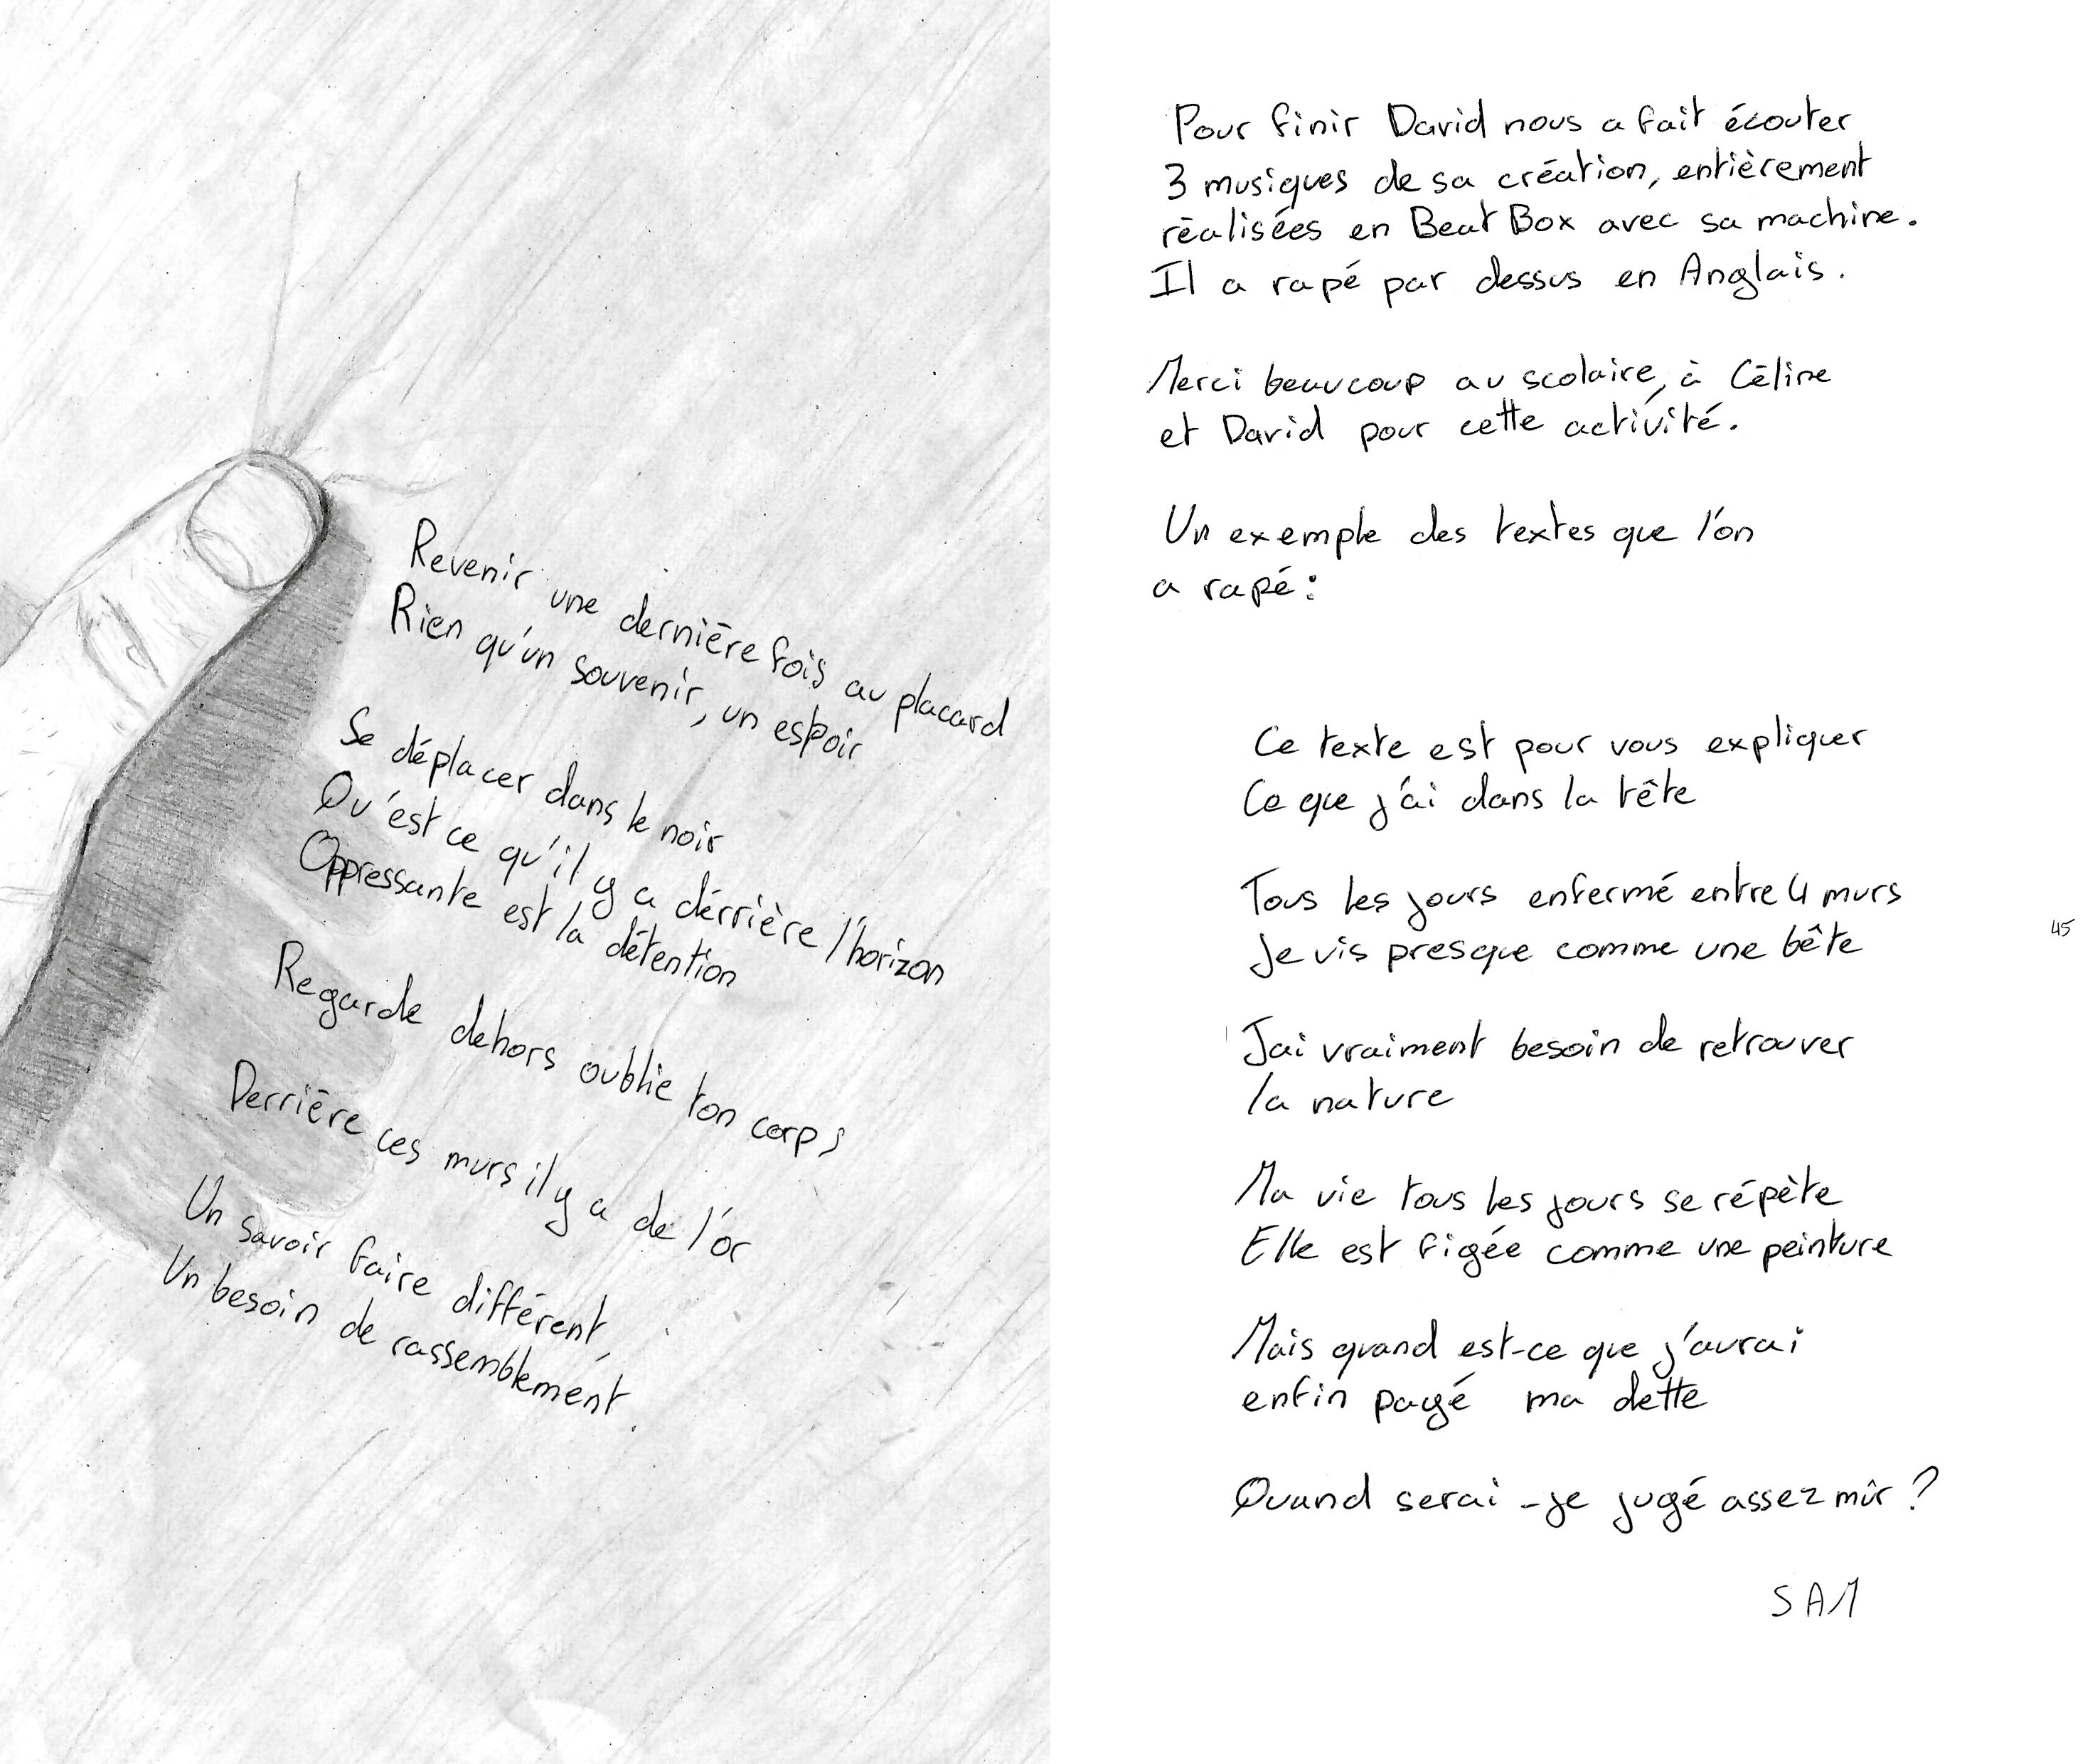 Revenir une dernière fois au placard
Rien qu'un souvenir, un espoir
Se déplacer dans le noir
Qu'est ce qu'il y a dérrière l'horizon
Oppressante est la détention
Regarde dehors oublie ton corps
Derrière ces murs il y a de l'or
Un savoir faire différent,
Un besoin de rassemblement.
Pour finir David nous a fait écouter
3 musiques de sa création, entièrement
réalisées en Beat Box avec sa machine.
Il a rapé par dessus en Anglais.
Merci beaucoup au scolaire, à Céline
et David pour cette activité.
Un exemple des textes que l'on
a rapé :
Ce texte est pour vous expliquer
Ce que j'ai dans la tête
Tous les jours enfermé entre 4 murs
Je vis presque comme une bête
J'ai vraiment besoin de retrouver
la nature
Ma vie tous les jours se répète
Elle est figée comme une peinture
Mais quand est-ce que j'aurai
enfin payé ma dette
Quand serai-je jugé assez mûr ?
SAM
45